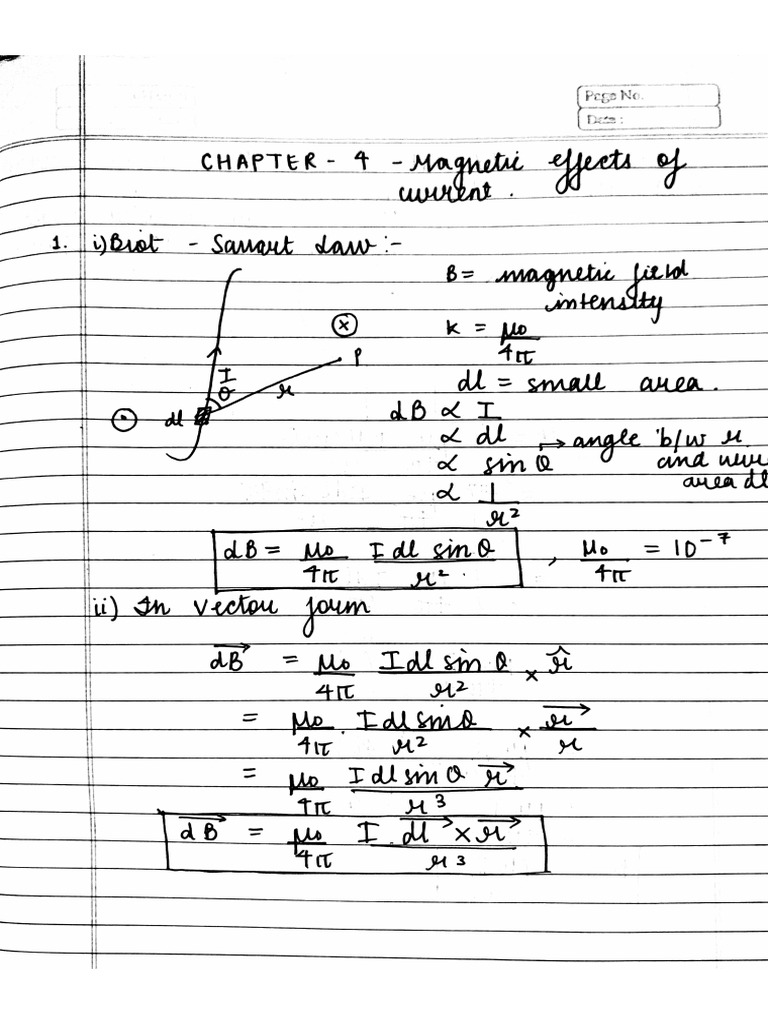 Page No.
Date :
CHAPTER - 4 - Magnetic effects of
current.
1. i) Biot - Savart Law :-
B = magnetic field
intensity
K = μ₀/4π
dl = small area.
I
θ
r
P
dl
dB ∝ I
∝ dl
∝ sin θ → angle b/w r
and
area dl
∝ 1/r²
dB = μ₀/4π I dl sin θ/r² . , μ₀/4π = 10⁻⁷
ii) In vector form
d͞B⃗ = μ₀/4π I dl sin θ/r² × r̂
= μ₀/4π . I dl sin θ/r² × r⃗/r
= μ₀/4π I dl sin θ r⃗/r³
dB⃗ = μ₀/4π I . dl⃗ × r⃗/r³